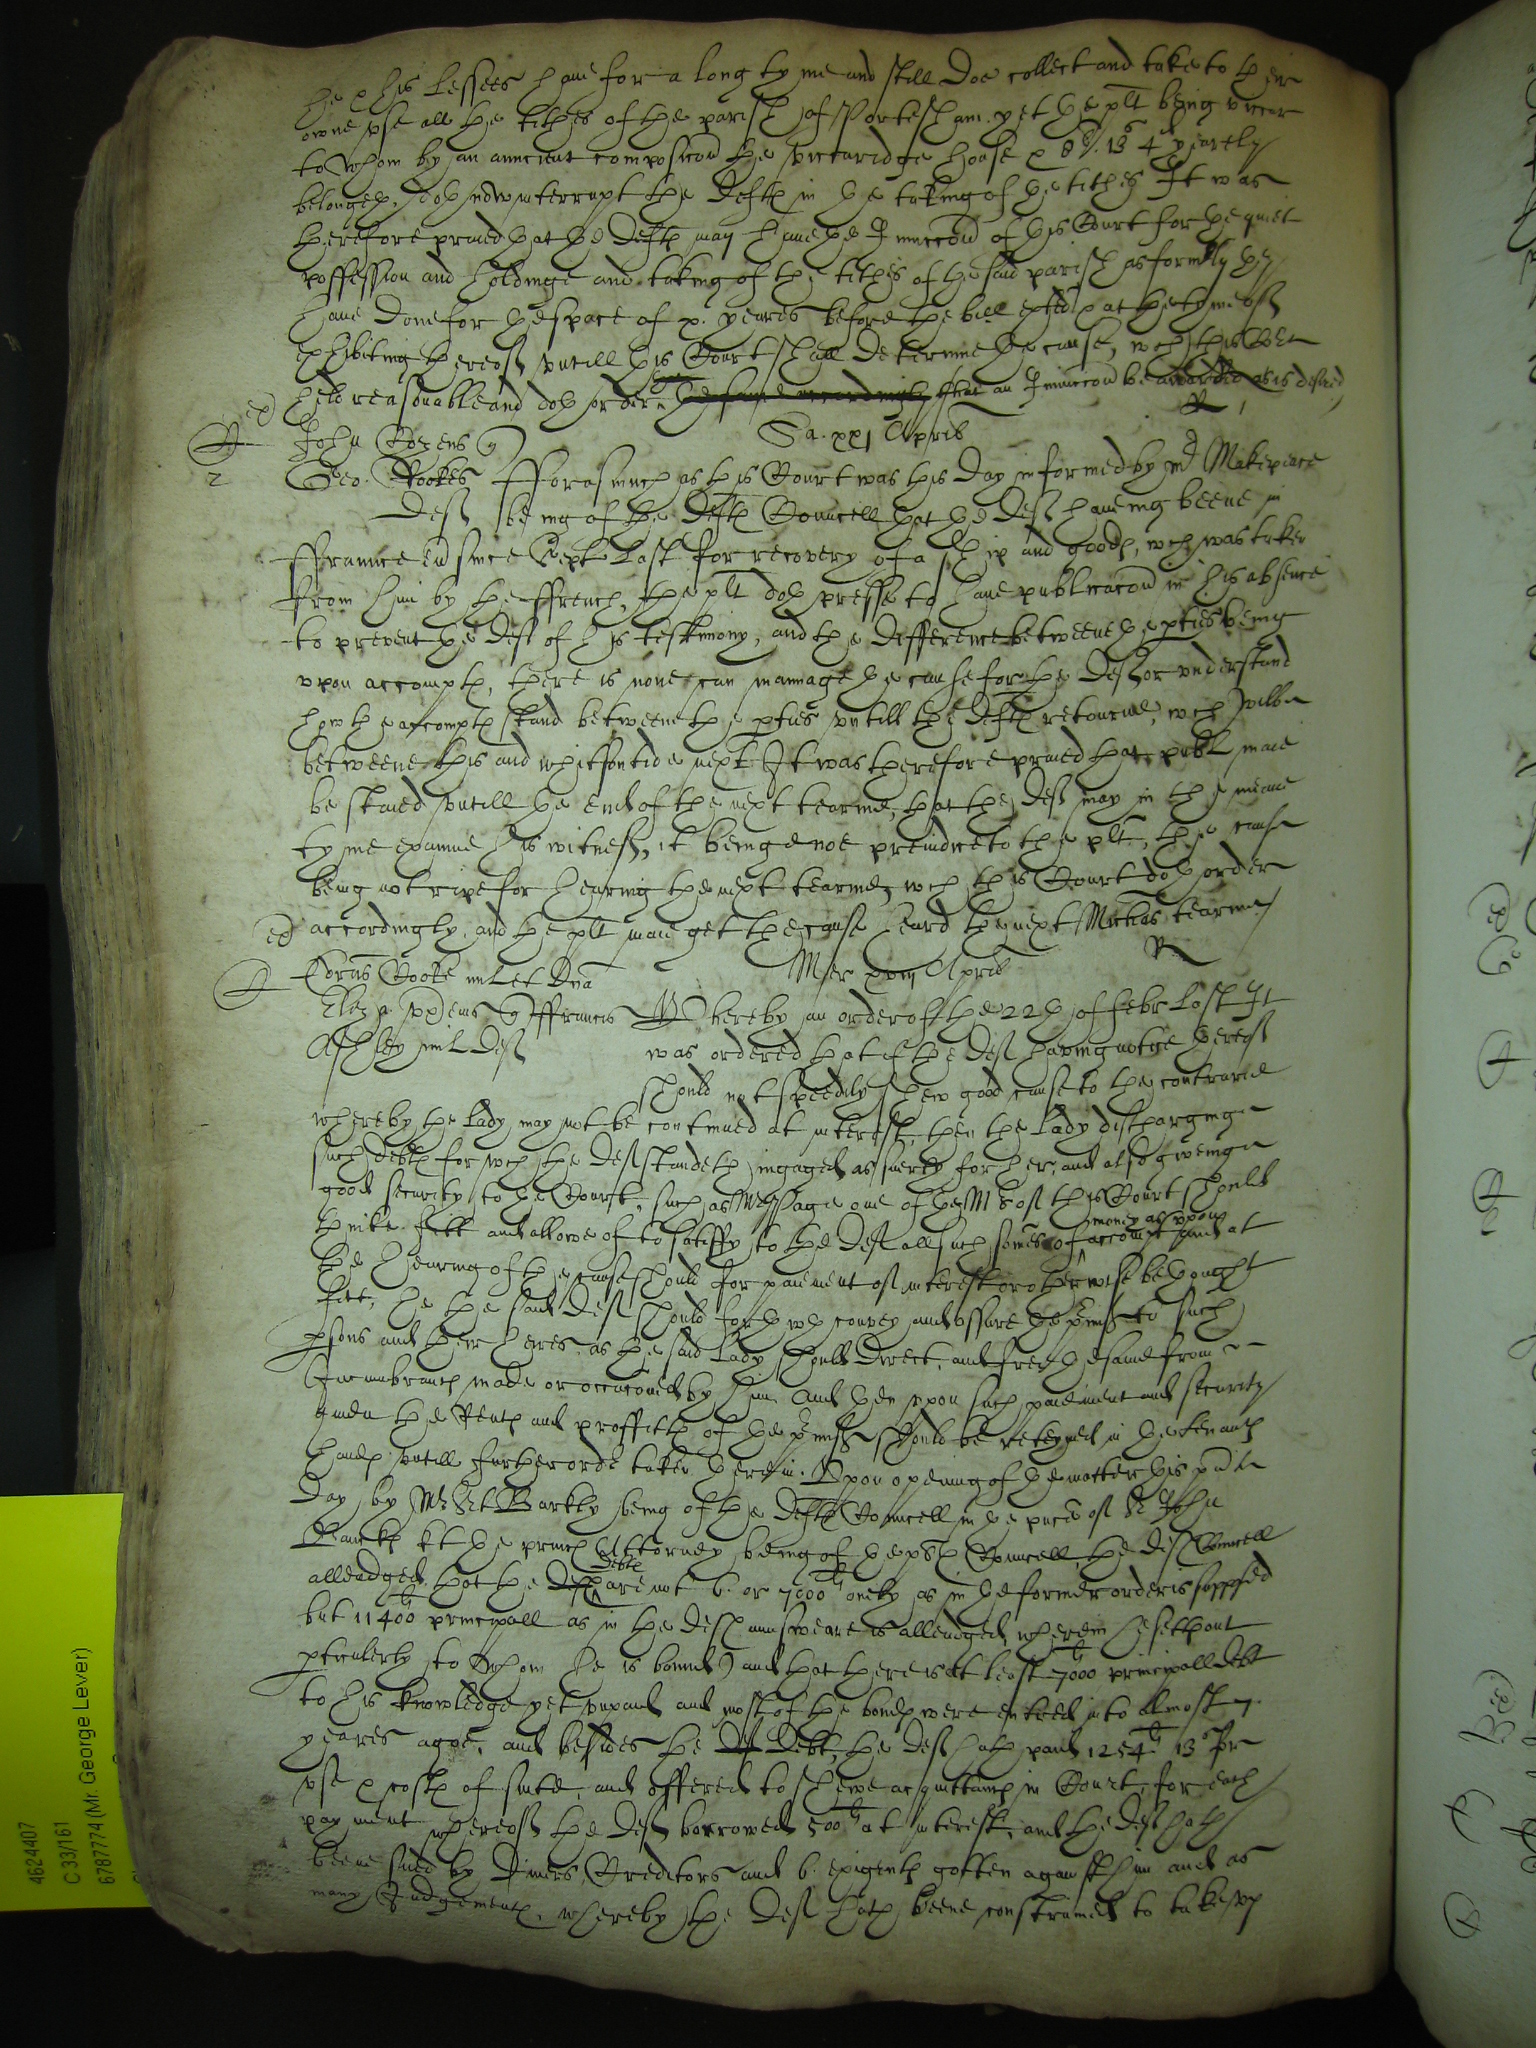 he & his Lessees have for a long tyme and still doe collect and take to their
owne use all the tithes of the parish of Portesham. yet the plt being viccar
to whom by an auncient composicon the viccaridge house & 8li. 13s 4d yearely
belongeth, doth now interrupt the defts in the taking of the tithes It was
therefore praied that the defts may have the Iniuccon of this Court for the quiet
possession and holdinge and taking of the tithes of the said parish as formly they
have done for the space of x. yeares before the bill exhibited & at the tyme of
exhibiting thereof untill this Court shall determine the cause, wch this Court
held reasonable and doth order that an Iniuccon be awarded as is desired
R
ex
Sa. xxj Aprilis
John Cozens q
2
Geo. Rookes Forasmuch as this Court was this day informed by mr Makepeace
Deft being of the Defts Councell that the Deft haveing beene in
Fraunce ever since Sept last for recovery of a ship and goods, wch was taken
from him by the French, the plt doth presse to have publicacon in his absence
to prevent the Deft of his testimony, and the difference betweene the pties being
upon accompts, there is none can mannage the cause for the Deft or understand
how the accompts stand betweene the pties untill the Defts retourne, wch wilbe
betweene this and whitsontide next It was therefore praied that publ maie
be staied untill the end of the next tearme, that the Deft may in the meane
tyme examine his witness, it being noe preiudice to the plt, the cause
being not ripe for hearing the next tearme, wch this Court doth order
ex
accordingly, and the plt maie get the cause heard the next Michas tearme
R
Mer xviij Aprilis
Cooke milet Dna
Eliz Ffrancis Whereby an order of the 22th of Febr Last It
Ashley mil Deft was ordered that if the Deft having notice thereof
should not speedily shew good cause to the contrarie
whereby the Lady may not be continued at interest, then the Lady discharging
such debts for wch the Deft standeth ingaged as suerty for her, and also giveinge
good security to the Court, such as Mr Page one of the Mrs of this Court should
thinke fitt and allowe of to satisfy to the Deft all such somes of money as upon accompt and at
the hearing of the cause should for paiement of interest or otherwise be thought
fitt, he the said Deft should forthwth convey and assure the pmisses to such
psons and their heires, as the said Lady should direct, and free the same from
Incumbrancs made or occaconed by him And then upon such paiement and security
given the Rents and proffitts of the pmisses should be reteyned in the tenants
hands untill further order taken therein. Upon opening of the matter this pnte
day by Mr Barkly being of the Defts Councell in the pnce of Sr John
Bancks kt the princs Attorney being of the plts Councell, the Defts Councell
alleadged that the debts are not 6. or 7000li onely as in the former order is supposed
but 11400li principall as in the Defts aunsweare is alleadged, wherein he setteth out
pticulerly to whom he is bound) and that there is at least 7000li principall debt
to his knowledge yet unpaid and most of the bonds were entred into almost 7.
yeares agoe, and besides the Debt, the Deft hath paid 1254li 13s for
use & costs of suite, and offered to shewe acquittancs in Court, for each
payment whereof the Deft borrowed 500li at interest, and the Deft hath
beene sued by Divers Creditors and 6. exigents gotten against him and as
many Iudgements, whereby the Deft hath beene constrained to take up
4624407
C 33/161
6787774 (Mr. George Lever)